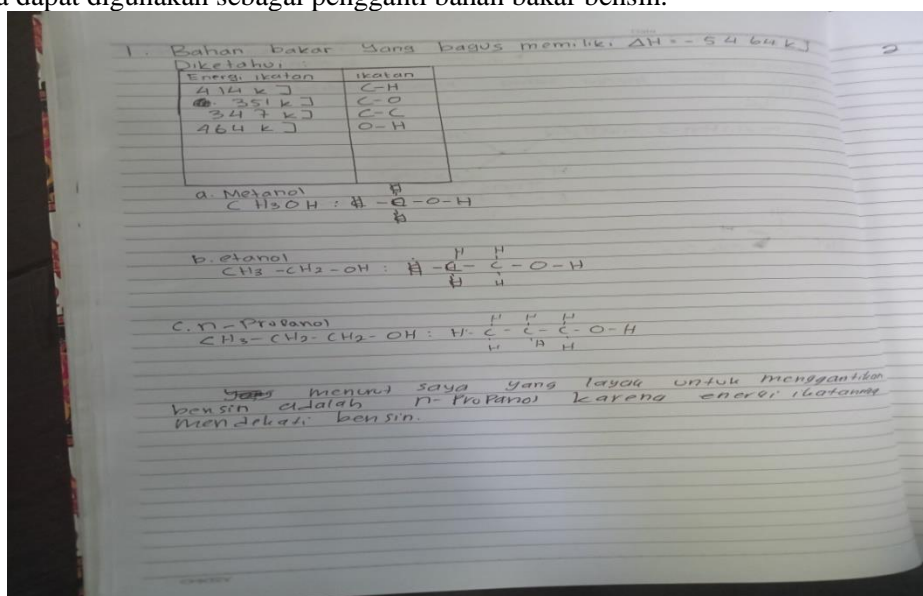 dapat digunakan sebagai pengganti bahan bakar bensin.
1. Bahan bakar yang bagus memiliki ΔH = -5464 kJ
Diketahui :
Energi ikatan Ikatan
414 kJ C-H
351 kJ C-O
347 kJ C-C
464 kJ O-H
a. Metanol
H
CH3OH : H - C - O - H
H
b. etanol
H H
CH3 - CH2 - OH : H - C - C - O - H
H H
c. n - Propanol
H H H
CH3 - CH2 - CH2 - OH : H - C - C - C - O - H
H H H
menurut saya yang layak untuk menggantikan
bensin adalah n - Propanol karena energi ikatannya
mendekati bensin.